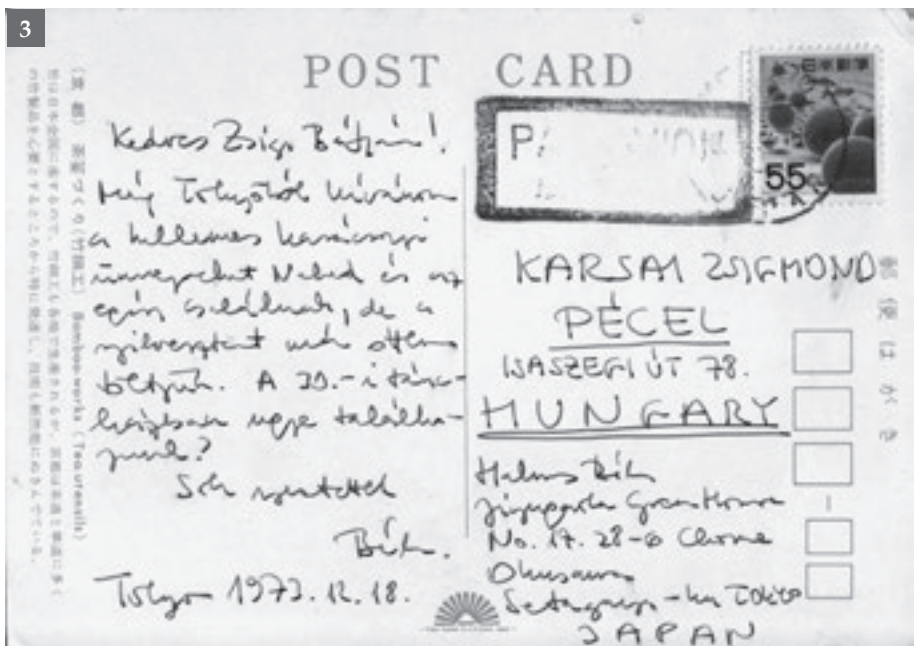 3
POST CARD
55
日本郵便
Kedves Zsiga Bátyám!
Még Tokyóból kívánom
a kellemes karácsonyi
ünnepeket Neked és az
egész családnak, de a
szilvesztert már otthon
töltjük. A 30.-i tánc-
házban ugye találko-
zunk?
Sok szeretettel
Béla.
Tokyo 1973.12.18.
KARSAI ZSIGMOND
PÉCEL
ISASZEGI ÚT 78.
HUNGARY
Halmos Béla
Jiyugaoka Green House
No. 17. 28-6 Chome
Okusawa
Setagaya-ku TOKYO
JAPAN
郵便はがき
Bamboo works (Tea utensils)